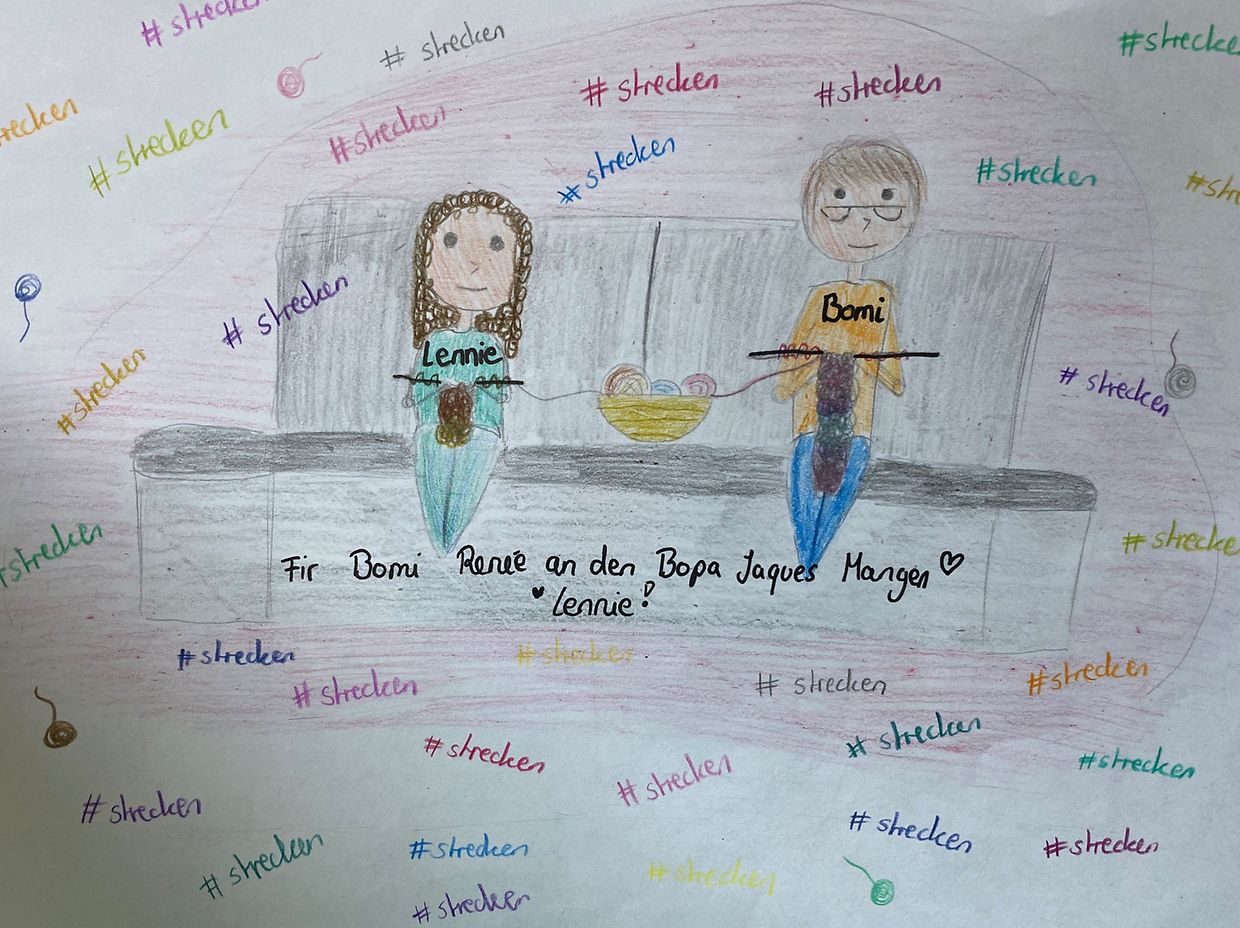 # strecke
# strecken
#strecke
#strecken
#strecken
recken
#strecken
#strecken
#strecken
#strecken
#str
# strecken
Bomi
Lennie
#strecken
# strecken
#strecken
#strecke
Fir Bomi Renée an den Bopa Jaques Mangen
Lennie!
#strecken
#strecken
# strecken
# strecken
#strecken
#strecken
#strecken
#strecken
#strecken
# strecken
# strecken
# strecken
#strecken
#strecken
# strecken
#strecken
#strecken